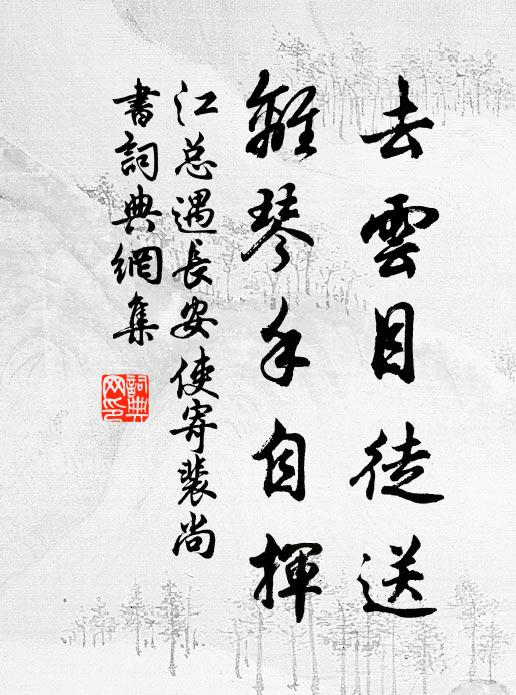 去雲目徒送
離琴手自揮
江总遇長安使寄裴尚
書詞典網集
詞典
网印